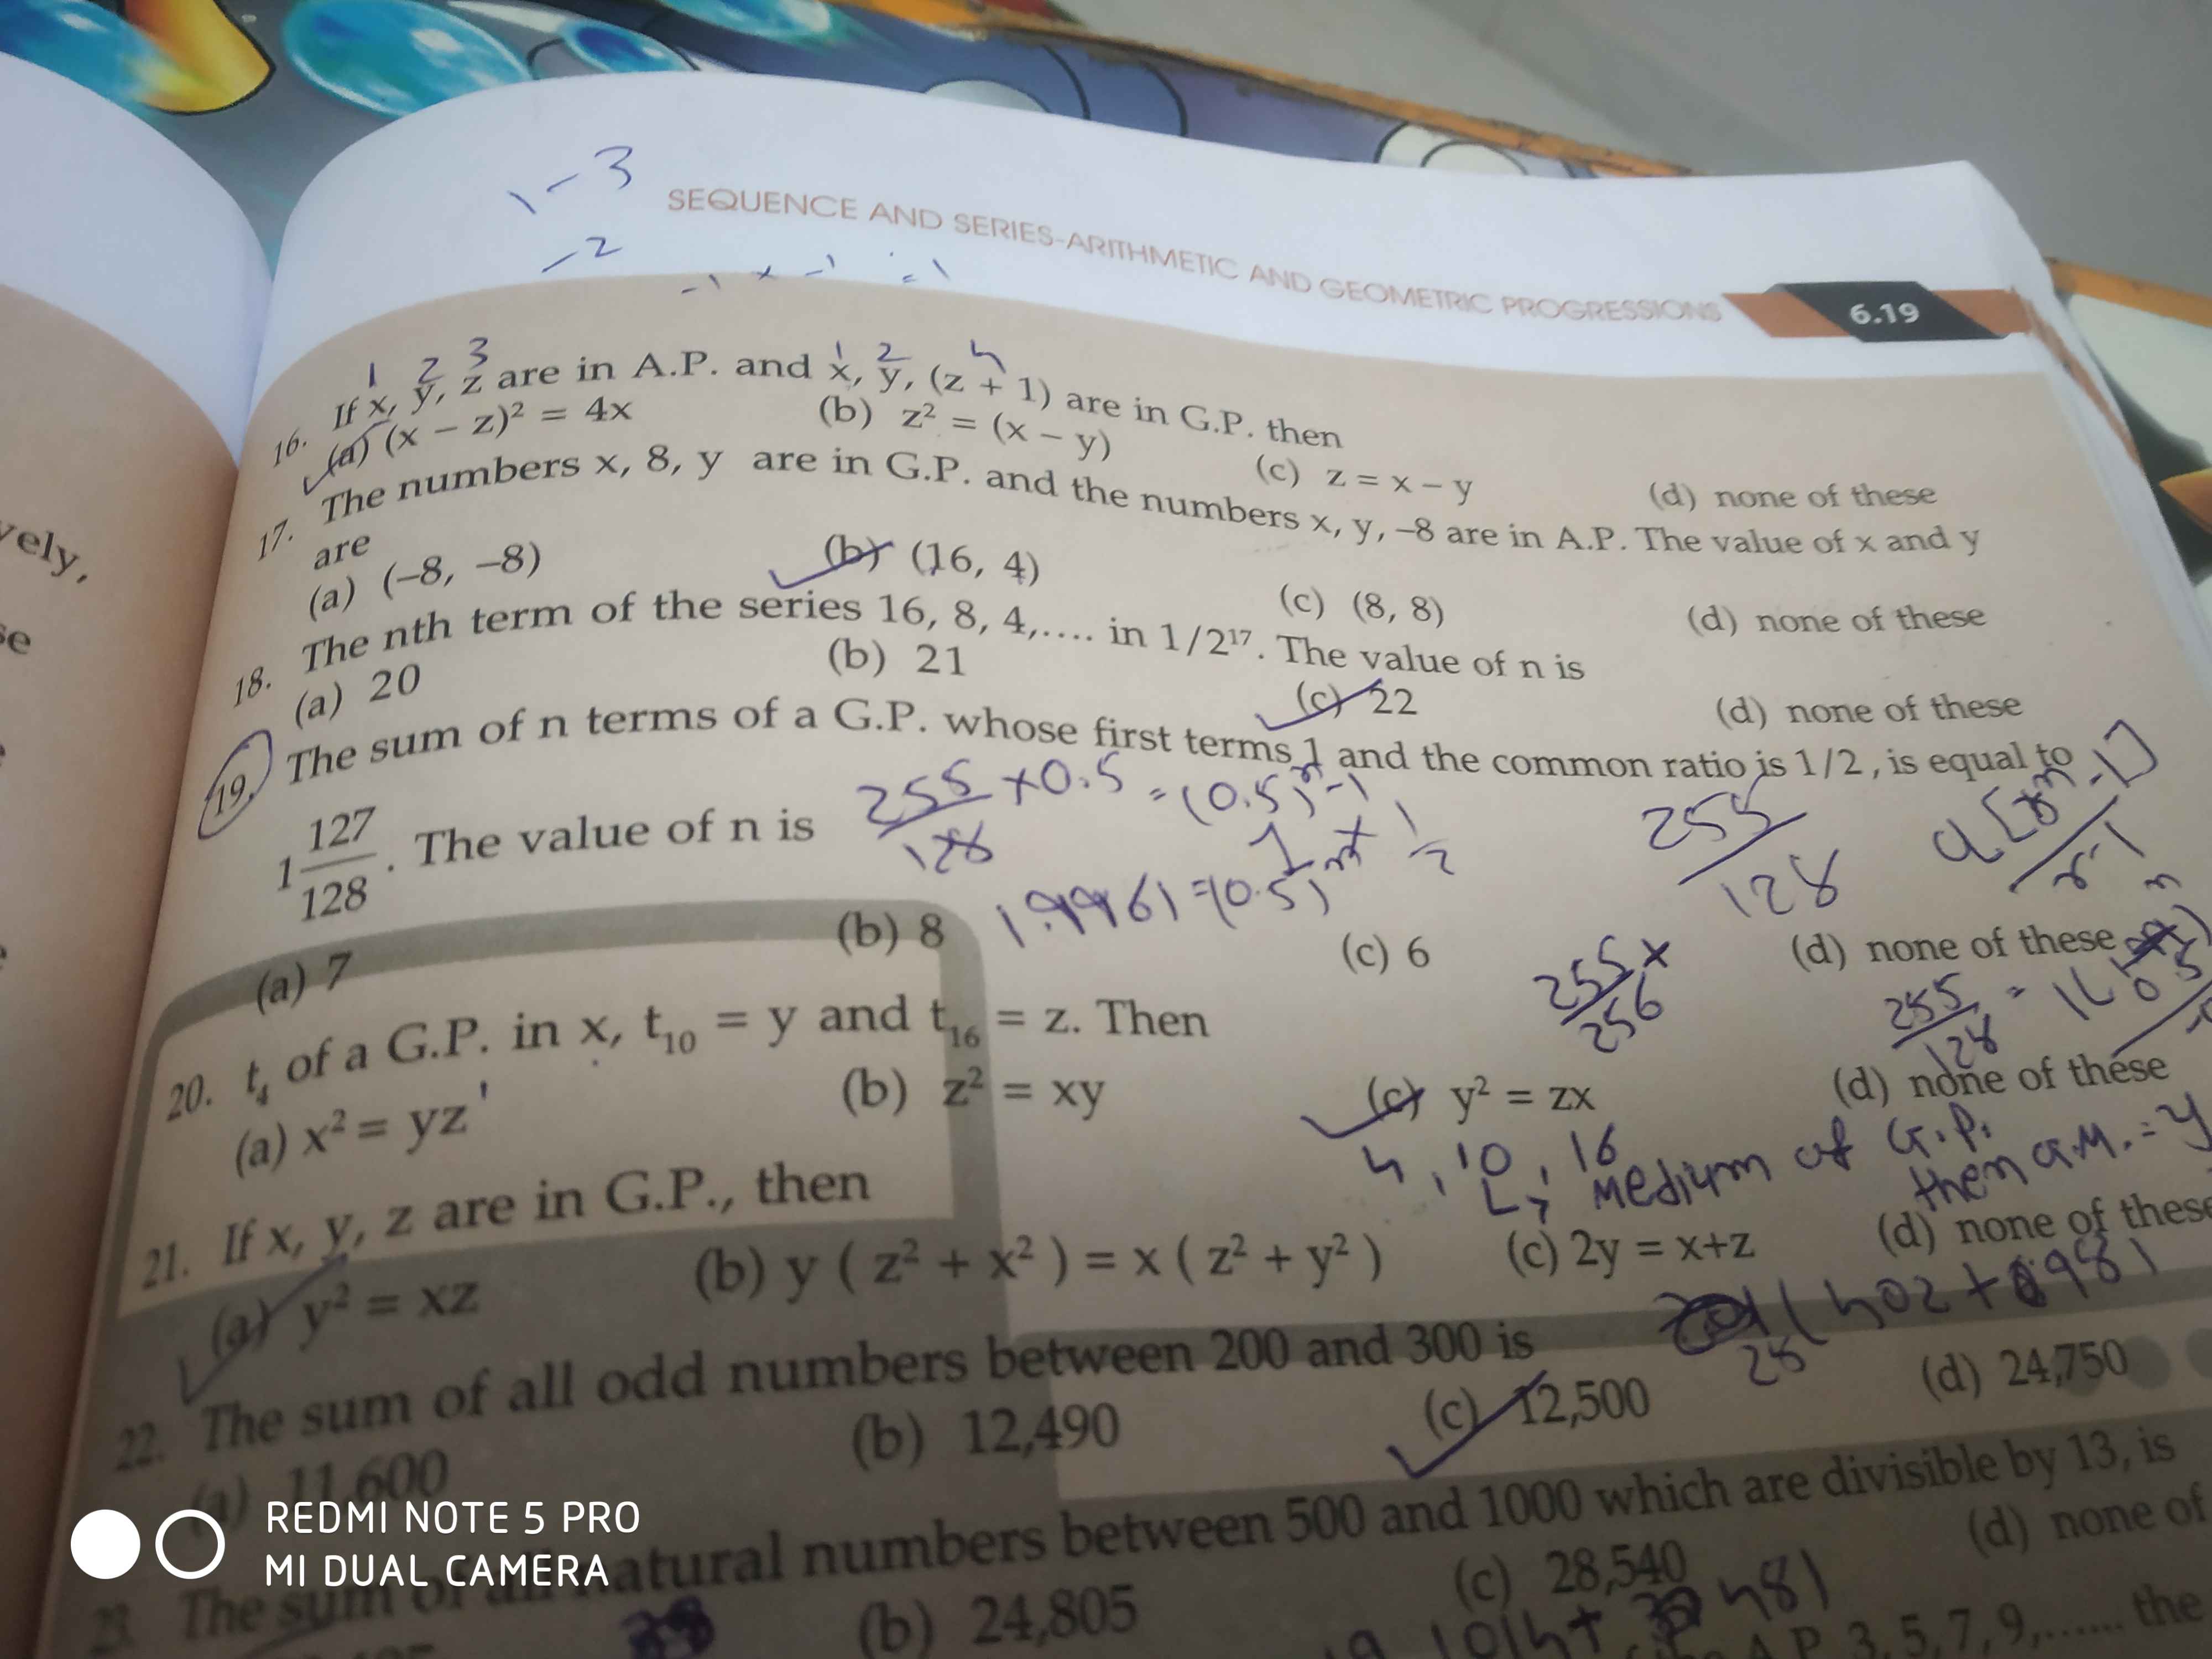 1 - 3
SEQUENCE AND SERIES-ARITHMETIC AND GEOMETRIC PROGRESSIONS
6.19
-2
-1 x -1 = 1
1 2 3 1 2 4
16. If x, y, z are in A.P. and x, y, (z + 1) are in G.P. then
(a) (x – z)² = 4x (b) z² = (x – y) (c) z = x – y (d) none of these
17. The numbers x, 8, y are in G.P. and the numbers x, y, –8 are in A.P. The value of x and y
are
(a) (–8, –8) (b) (16, 4) (c) (8, 8) (d) none of these
18. The nth term of the series 16, 8, 4,.... in 1/2¹⁷. The value of n is
(a) 20 (b) 21 (c) 22 (d) none of these
19. The sum of n terms of a G.P. whose first terms 1 and the common ratio is 1/2, is equal to
1 127/128. The value of n is
255/128 x 0.5 = (0.5)ⁿ-1
255/128
(a) 7 (b) 8 (c) 6 (d) none of these
1.9961 = (0.5)
255/256
255/128 =
20. t₄ of a G.P. in x, t₁₀ = y and t₁₆ = z. Then
(a) x² = yz (b) z² = xy (c) y² = zx (d) none of these
4, 10, 16
Medium of G.P.
then G.M. = y
21. If x, y, z are in G.P., then
(a) y² = xz (b) y ( z² + x² ) = x ( z² + y² ) (c) 2y = x+z (d) none of these
22. The sum of all odd numbers between 200 and 300 is
(a) 11,600 (b) 12,490 (c) 12,500 (d) 24,750
23. The sum of all natural numbers between 500 and 1000 which are divisible by 13, is
(b) 24,805 (c) 28,540 (d) none of
A.P. 3, 5, 7, 9,...... the
vely,
REDMI NOTE 5 PRO
MI DUAL CAMERA